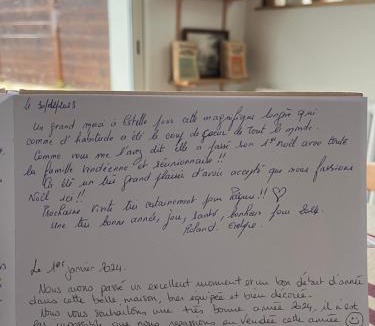 le 30/12/2023
Un grand merci à Estelle pour cette magnifique longère qui
comme d'habitude a été le coup de cœur de tout le monde.
Comme vous me l'avez dit elle a fait son 1er noël avec toute
la famille vendéenne et réunionnaise !!
Ça été un très grand plaisir d'avoir accepté que nous fassions
Noël ici !!
Prochaine visite très certainement pour !! ♡
Une très bonne année, joie, santé, bonheur pour 2024.
Roland Evelyne.
Le 1er janvier 2024.
Nous avons passé un excellent moment et un bon début d'année
dans cette belle maison, bien équipée et bien décorée.
Nous vous souhaitons une très bonne année 2024, il n'est
pas impossible que nous repassions en Vendée cette année ☺